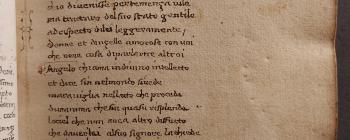 ch io divenisse per temenza vile
ma tenetevi del suo stato gentile
a dispecto di lei leggeramente
Donne et donçelle amorose con voi
che non e cosa da parlarne altrui
Angelo chiama indivino intellecto
et dice sire nel mondo si vede
maraviglia nellacto che procede
d un anima che fin qua su risplende
lo ciel che non a altro difecto
che d aver lei al suo signore la chiede